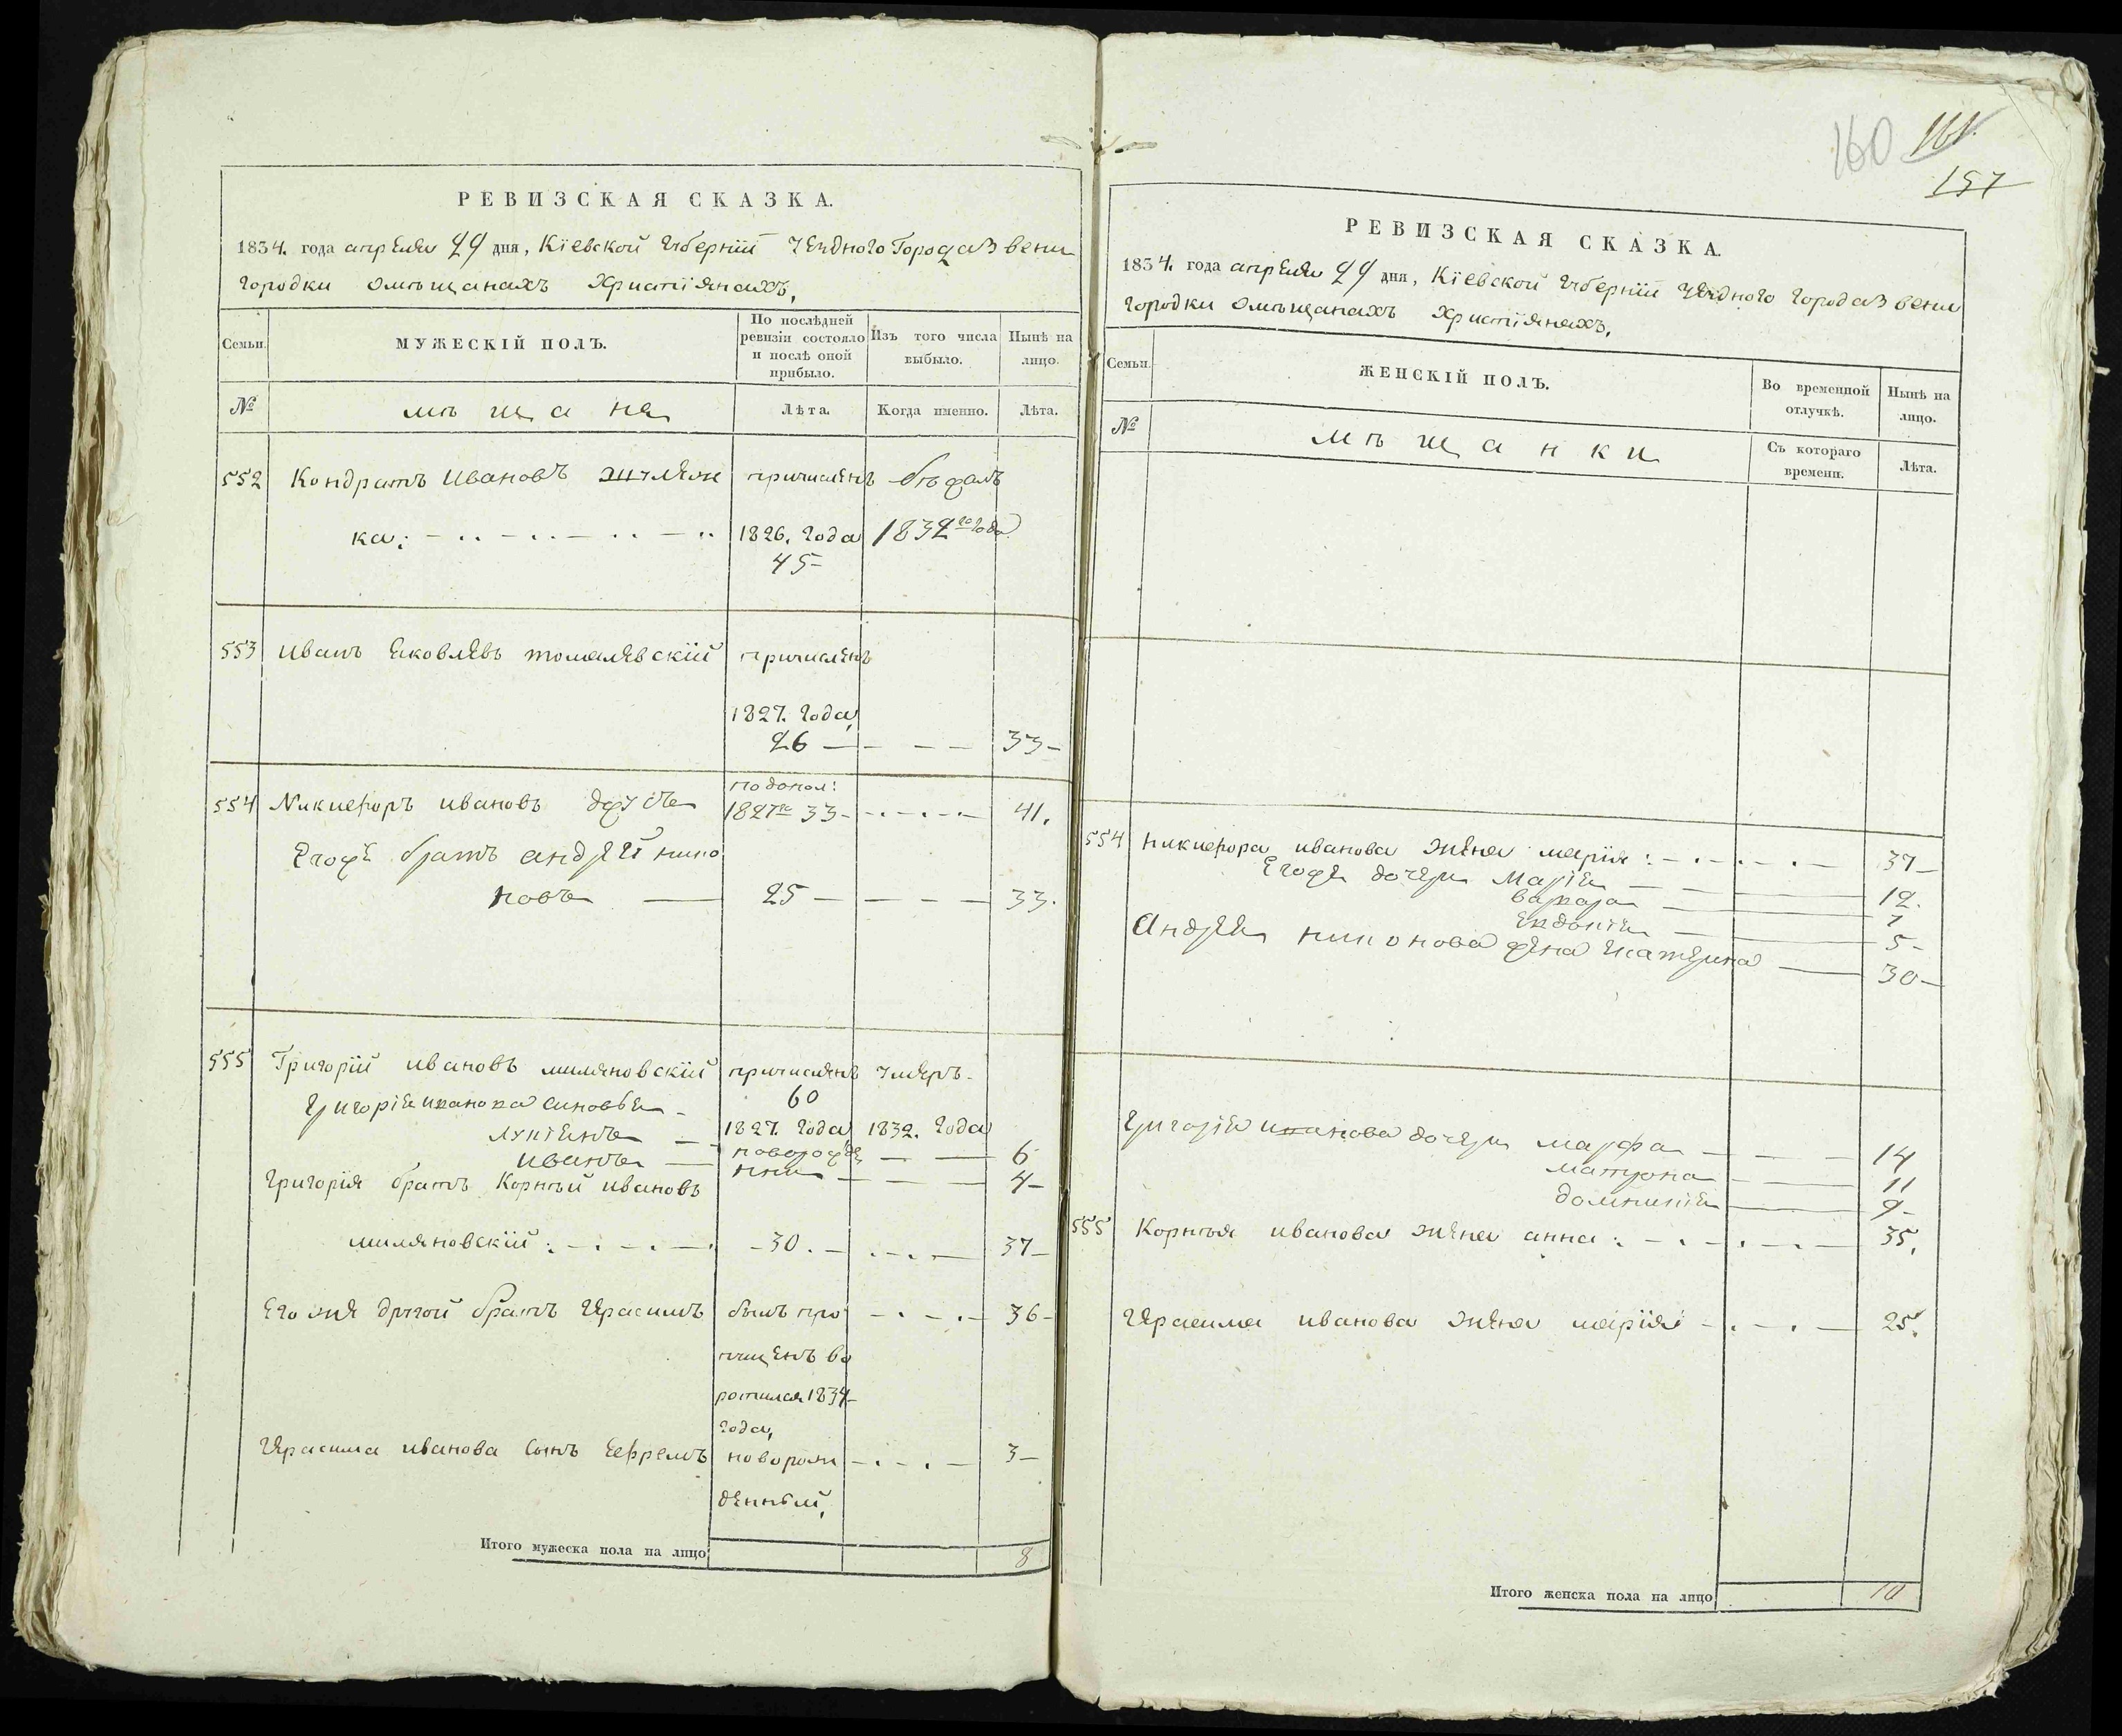 160 161.
157
РЕВИЗСКАЯ СКАЗКА.
1834. года апреля 29 дня, Кіевской Губерніи уезднаго Города Звени
городки омѣщанахъ Христіянахъ,
Семьи.
МУЖЕСКІЙ ПОЛЪ.
По послѣдней ревизіи состояло и послѣ оной прибыло.
Изъ того числа выбыло.
Нынѣ на лицо.
№
мѣщане
Лѣта.
Когда именно.
Лѣта.
552 Кондратъ Ивановъ причисленъ
ка: 1826. года 1832го года
45
553 Иванъ Яковлевъ причисленъ
1827. года,
26 33
554 Никифоръ ивановъ 1827го 33 41.
брат андрей нико
новъ 25 33.
555 Григорій ивановъ миляновскій причисленъ умеръ
60
Григорія иванова сыновья
1827. года 1832. года
иванъ 6
4
Григорія братъ Корнѣй ивановъ
миляновскій: 30. 37
Его же другой братъ Герасимъ былъ про 36
пущенъ во
ротился 1834
года,
Герасима иванова сынъ Ефремъ новорож 3
денный,
Итого мужеска пола на лицо 8
РЕВИЗСКАЯ СКАЗКА.
1834. года апреля 29 дня, Кіевской Губерніи уезднаго города Звени
городки омѣщанахъ Христіянахъ,
Семьи.
ЖЕНСКІЙ ПОЛЪ.
Во временной отлучкѣ.
Нынѣ на лицо.
№
мѣщанки
Съ котораго времени.
Лѣта.
554 Никифора иванова жена марія: 37
дочери Марія 12.
варвара 7
Евдокія 5
Андрея никонова жена Екатерина 30
Григорія иванова дочери марфа 14
матрона 11
домникія 9
555 Корнѣя иванова жена анна: 35.
Герасима иванова жена марія 25.
Итого женска пола на лицо 10